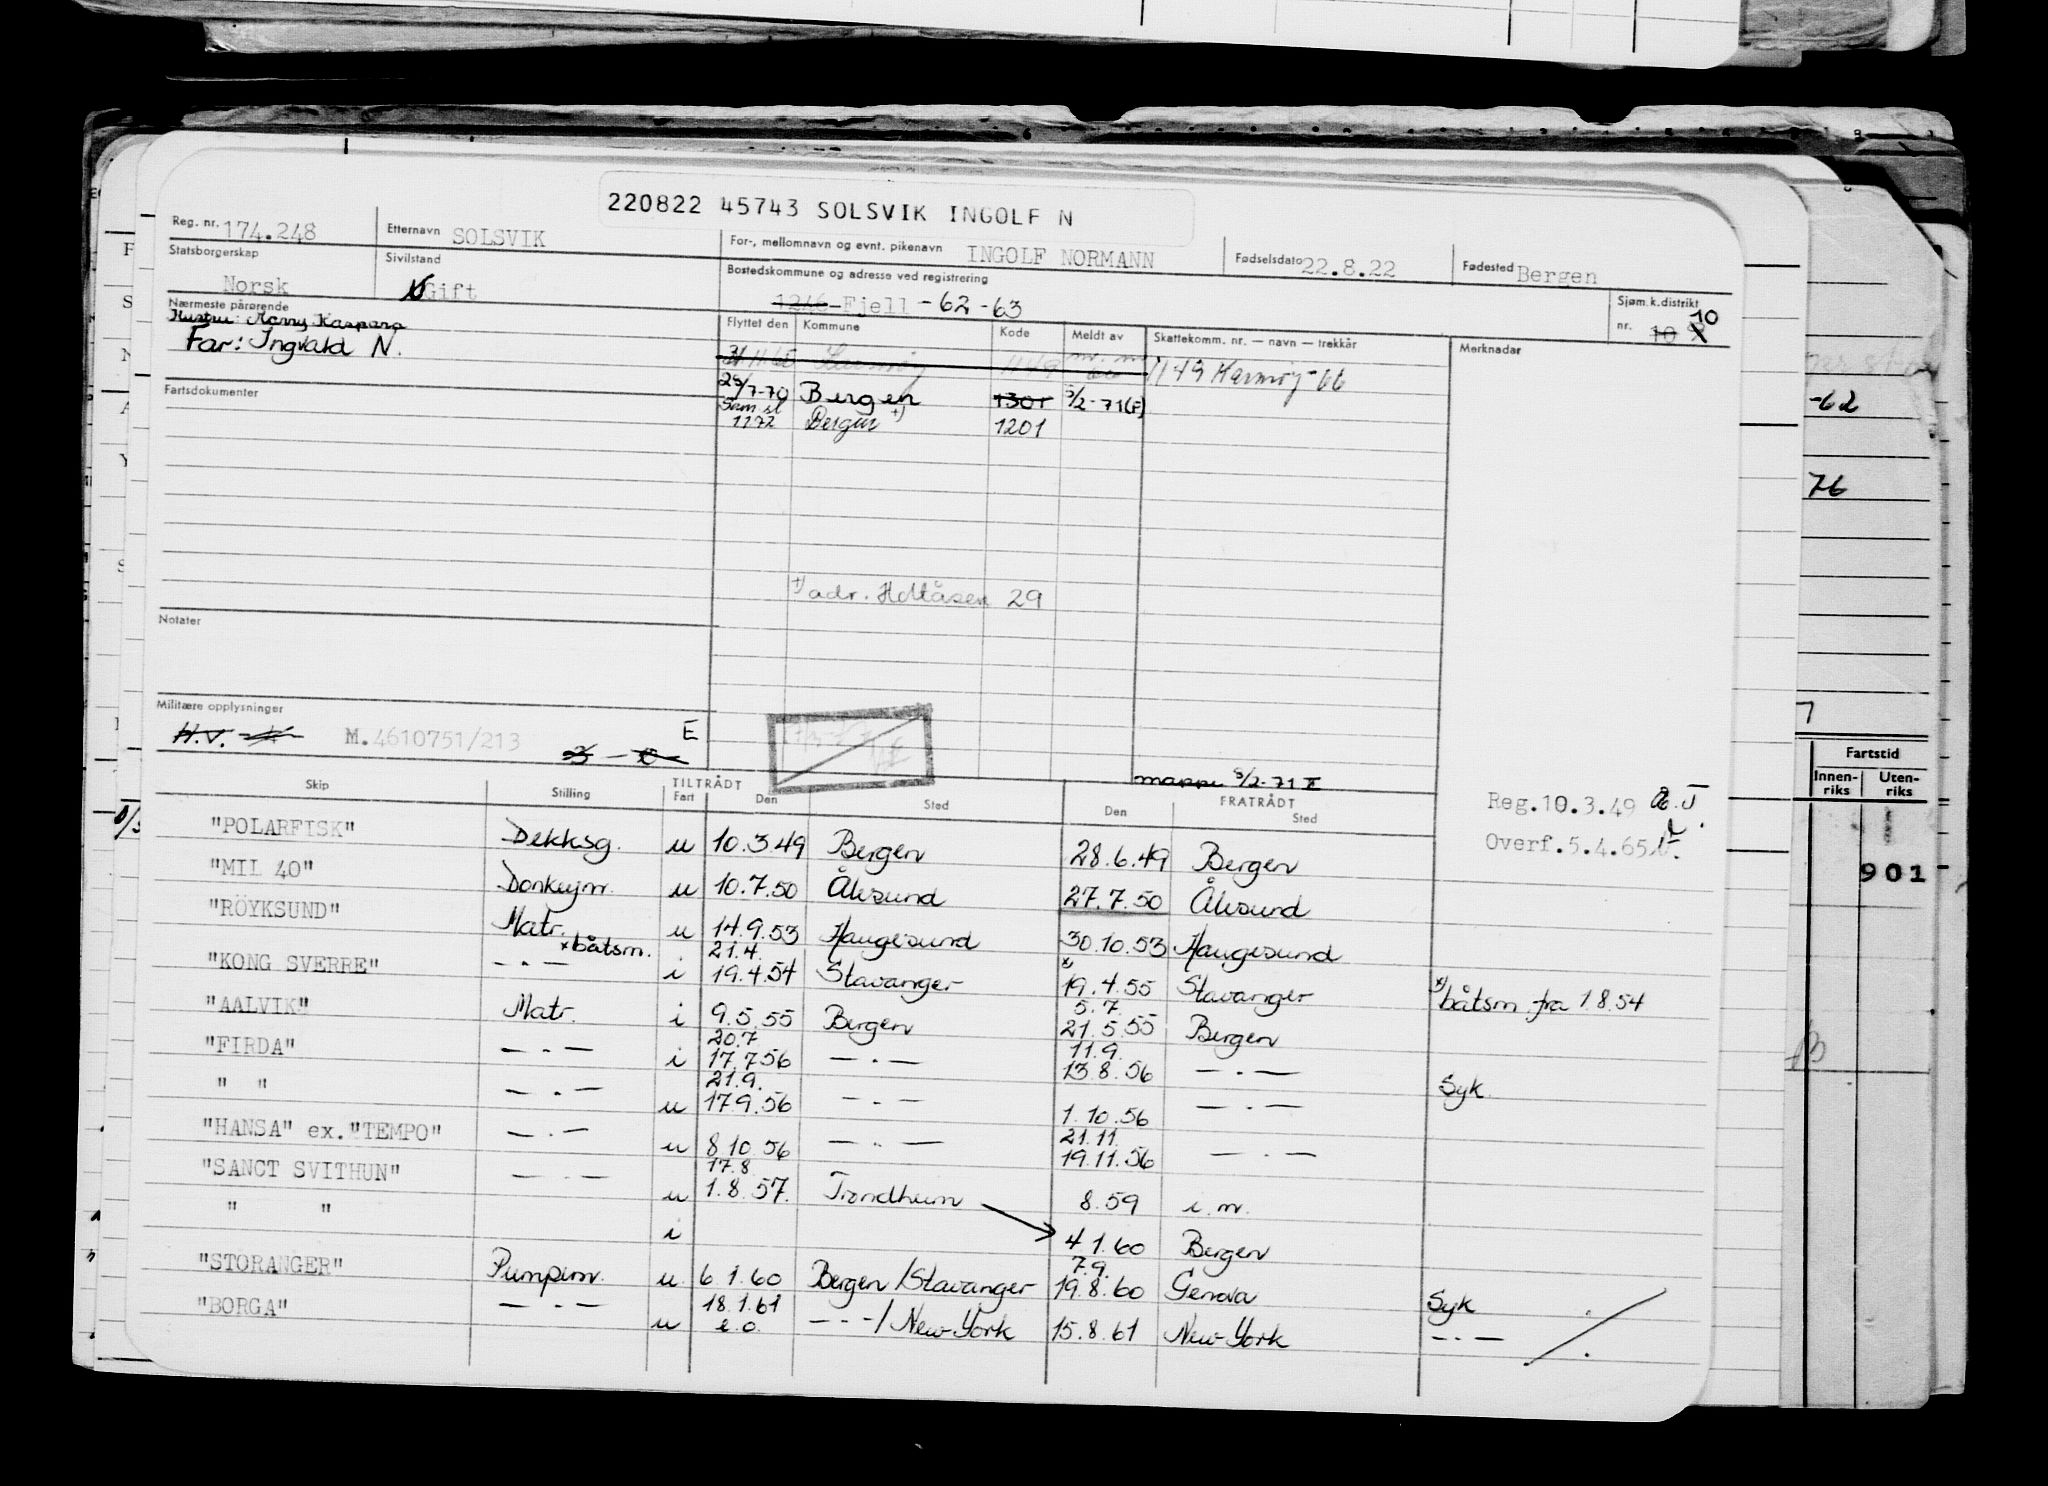 220822 45743 SOLSVIK INGOLF N
Reg. nr. 174.248 Etternavn SOLSVIK For-, mellomnavn og evnt. pikenavn INGOLF NORMANN Fødselsdato 22.8.22 Fødested Bergen
Statsborgerskap Norsk Sivilstand Gift Bostedskommune og adresse ved registrering 1246 Fjell -62 -63 Sjøm.k.distrikt nr. 10 10
Nærmeste pårørende
Hustru: Kaspara
Far: Ingvald N.
Flyttet den Kommune Kode Meldt av Skattekomm. nr. — navn — trekkår Merknadar
1149 1149 Karmøy -66
Fartsdokumenter
29/7-70 Bergen 1301 5/2-71(F)
1172 Bergen +) 1201
+) adr. Hellåsen 29
Notater
Militære opplysninger
H.V. M.4610751/213 E
5/2-71
Skip Stilling TILTRÅDT Fart Den Sted FRATRÅDT Den Sted
Reg.10.3.49
Overf.5.4.65
"POLARFISK" Dekksg. u 10.3.49 Bergen 28.6.49 Bergen
"MIL 40" Donkeym. u 10.7.50 Ålesund 27.7.50 Ålesund
"RÖYKSUND" Matr. u 14.9.53 Haugesund 30.10.53 Haugesund
"KONG SVERRE" — . — x båtsm. i 21.4. 19.4.54 Stavanger x) 19.4.55 Stavanger x) båtsm. fra 1.8.54
"AALVIK" Matr. i 9.5.55 Bergen 5.7. 21.5.55 Bergen
"FIRDA" — . — i 20.7 17.7.56 — . — 11.9. 13.8.56 — . — Syk.
" " — . — u 21.9. 17.9.56 — . — 1.10.56 — . —
"HANSA" ex."TEMPO" — . — u 8.10.56 — . — 21.11. 19.11.56 — . —
"SANCT SVITHUN" — . — u 17.8 1.8.57. Trondheim 8.59 i.m.
" " i 4.1.60 Bergen
"STORANGER" Pumpm. u 6.1.60 Bergen/Stavanger 7.9. 19.8.60 Genova Syk
"BORGA" — . — u 18.1.61 e.o. — . — / New York 15.8.61 New York — . —
-62
76
Fartstid
Innen-riks Uten-riks
901